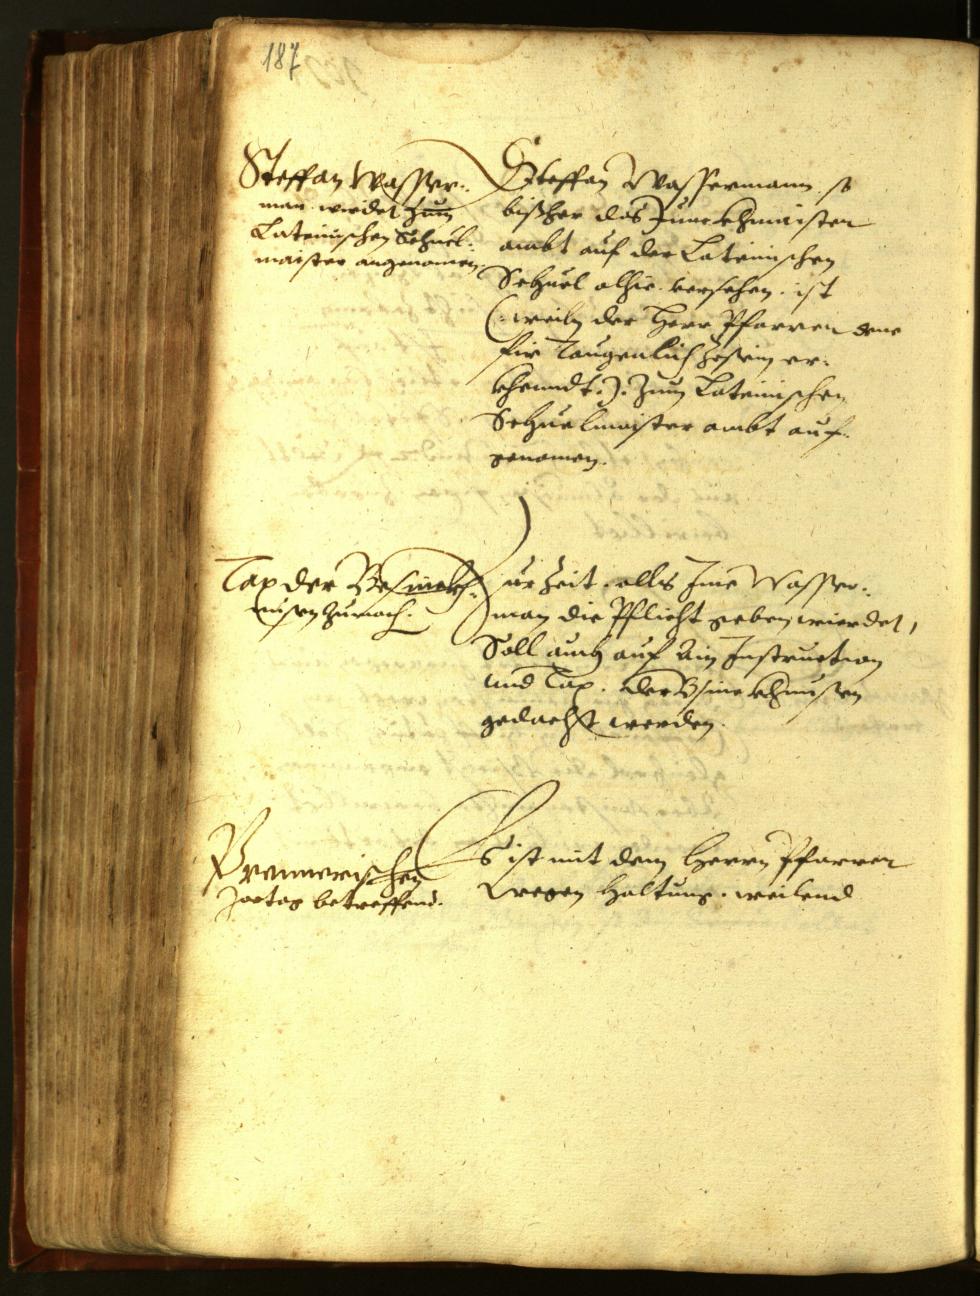 187
Steffan Wasser-
man wirdet zum
Lateinischen Schuel-
maister angenomen.
Steffan Wassermann so
bißher das Junckhmaister
ambt auf der Lateinischen
Schuel alhie versehen. ist
(: weiln der Herr Pfarrer
für Taugenlich zesein er-
khenndt :). Zum Lateinischen
Schuelmaister ambt auf-
genomen.
Tax der
Zur Zeit. alls Ime Wasser-
man die Pflicht geben wierdet,
Soll auch auf Ain Instruction
und Tax. der
gedacht werden.
Prennerischen
Jartag betreffend.
Es ist mit dem Herrn Pfarrer
wegen Haltung. weilend